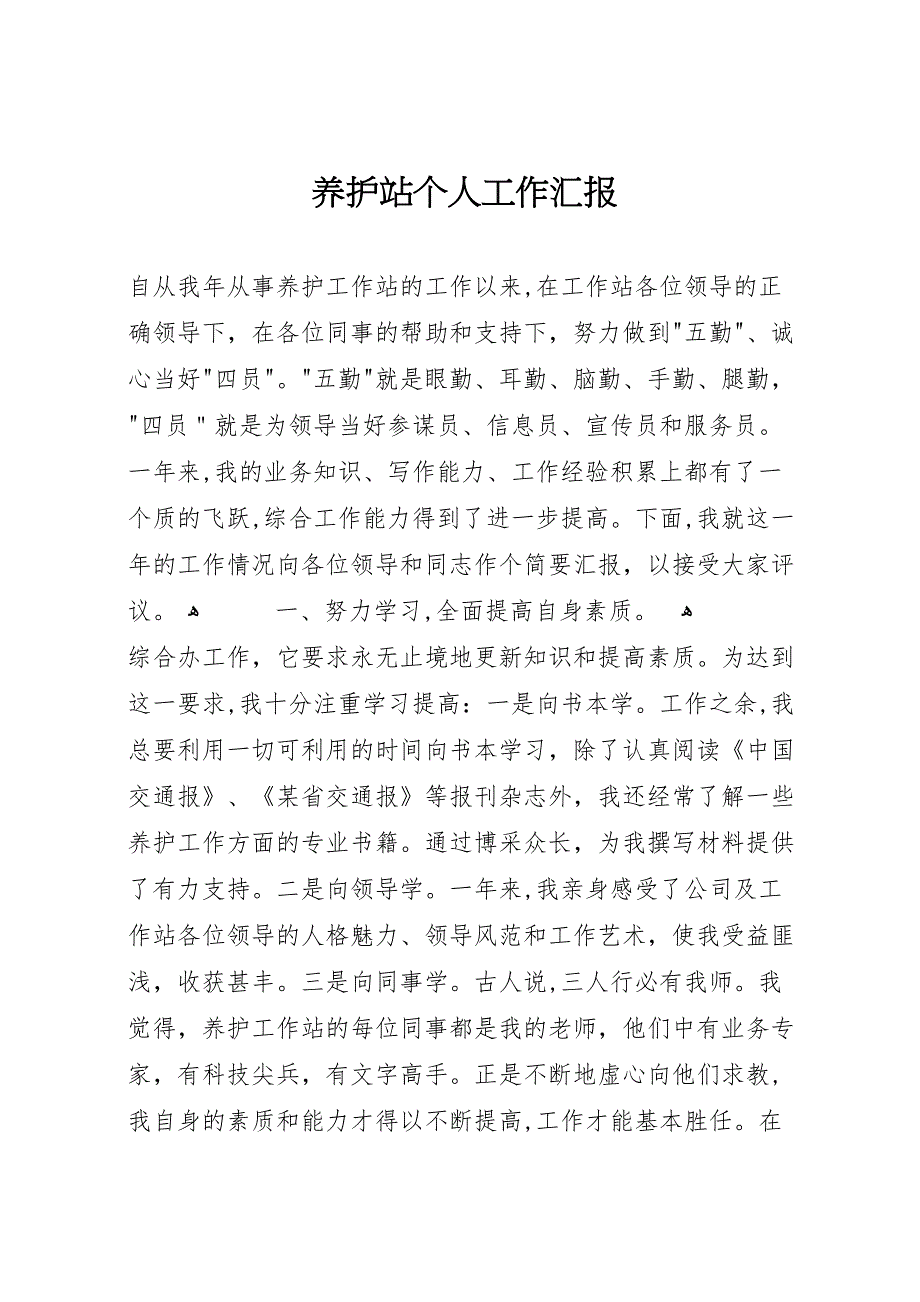 养护站个人工作汇报
自从我年从事养护工作站的工作以来,在工作站各位领导的正
确领导下，在各位同事的帮助和支持下，努力做到"五勤"、诚
心当好"四员"。"五勤"就是眼勤、耳勤、脑勤、手勤、腿勤，
"四员＂就是为领导当好参谋员、信息员、宣传员和服务员。
一年来,我的业务知识、写作能力、工作经验积累上都有了一
个质的飞跃,综合工作能力得到了进一步提高。下面,我就这一
年的工作情况向各位领导和同志作个简要汇报，以接受大家评
议。ﻫ 一、努力学习,全面提高自身素质。 ﻫ
综合办工作，它要求永无止境地更新知识和提高素质。为达到
这一要求,我十分注重学习提高：一是向书本学。工作之余,我
总要利用一切可利用的时间向书本学习，除了认真阅读《中国
交通报》、《某省交通报》等报刊杂志外，我还经常了解一些
养护工作方面的专业书籍。通过博采众长，为我撰写材料提供
了有力支持。二是向领导学。一年来,我亲身感受了公司及工
作站各位领导的人格魅力、领导风范和工作艺术，使我受益匪
浅，收获甚丰。三是向同事学。古人说,三人行必有我师。我
觉得，养护工作站的每位同事都是我的老师，他们中有业务专
家，有科技尖兵，有文字高手。正是不断地虚心向他们求教,
我自身的素质和能力才得以不断提高,工作才能基本胜任。在